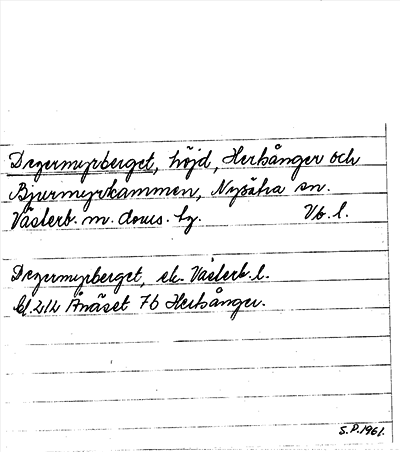 Degermyrberget, höjd, Hertsånger och
Bjurmyrkammen, Nysätra sn.
Västerb. m. doms. hg. Vb. l.
Degermyrberget, ek. Västerb. l.
bl. 212 Ånäset 7b Hertsånger.
S.P. 1961.